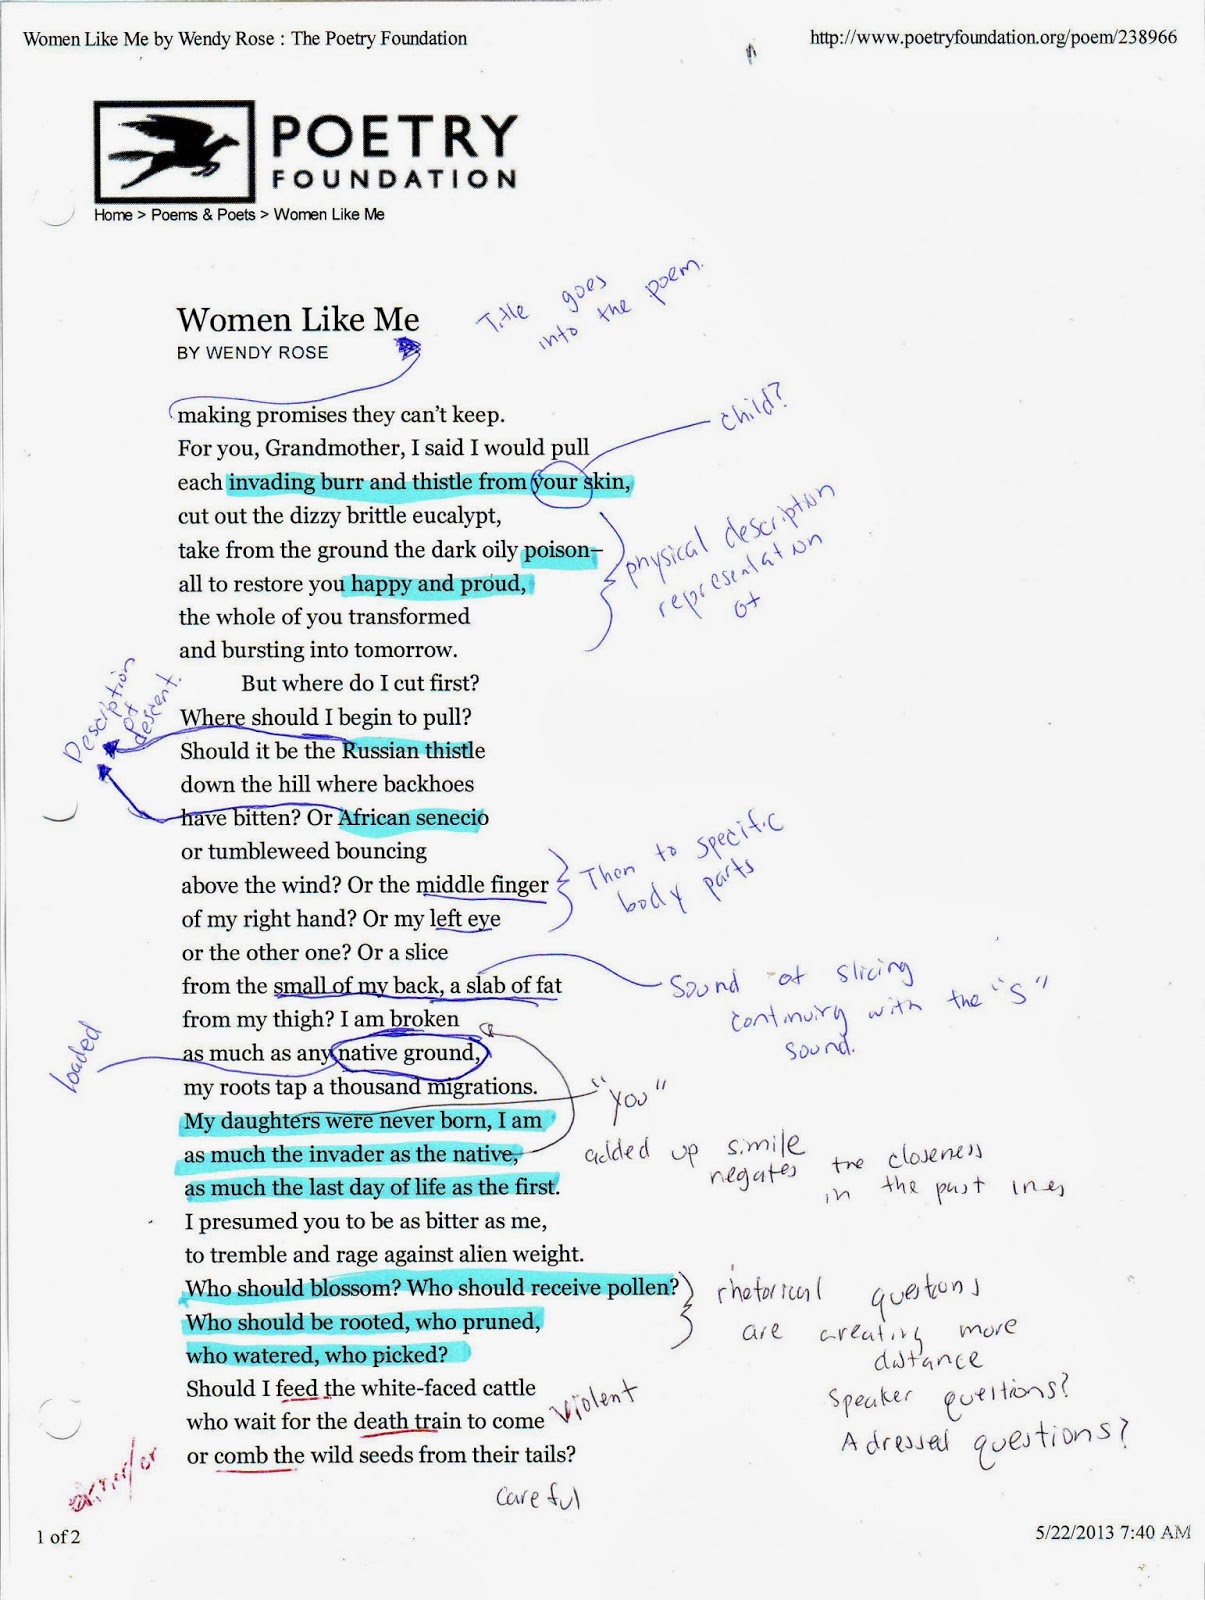 Women Like Me by Wendy Rose : The Poetry Foundation
http://www.poetryfoundation.org/poem/238966
POETRY
FOUNDATION
Home > Poems & Poets > Women Like Me
Title goes
into the poem.
Women Like Me
BY WENDY ROSE
making promises they can't keep.
child?
For you, Grandmother, I said I would pull
each invading burr and thistle from your skin,
cut out the dizzy brittle eucalypt,
take from the ground the dark oily poison–
all to restore you happy and proud,
the whole of you transformed
and bursting into tomorrow.
physical description
representation
of
But where do I cut first?
Where should I begin to pull?
Description
of
descent.
Should it be the Russian thistle
down the hill where backhoes
have bitten? Or African senecio
or tumbleweed bouncing
above the wind? Or the middle finger
of my right hand? Or my left eye
Then to specific
body parts
or the other one? Or a slice
from the small of my back, a slab of fat
Sound of slicing
continuing with the "S"
sound.
from my thigh? I am broken
as much as any native ground,
loaded
my roots tap a thousand migrations.
"you"
My daughters were never born, I am
as much the invader as the native,
as much the last day of life as the first.
added up simile
negates the closeness
in the past lines
I presumed you to be as bitter as me,
to tremble and rage against alien weight.
Who should blossom? Who should receive pollen?
Who should be rooted, who pruned,
who watered, who picked?
rhetorical questions
are creating more
distance
Speaker questions?
Adressed questions?
Should I feed the white-faced cattle
who wait for the death train to come
violent
or comb the wild seeds from their tails?
careful
1 of 2
5/22/2013 7:40 AM